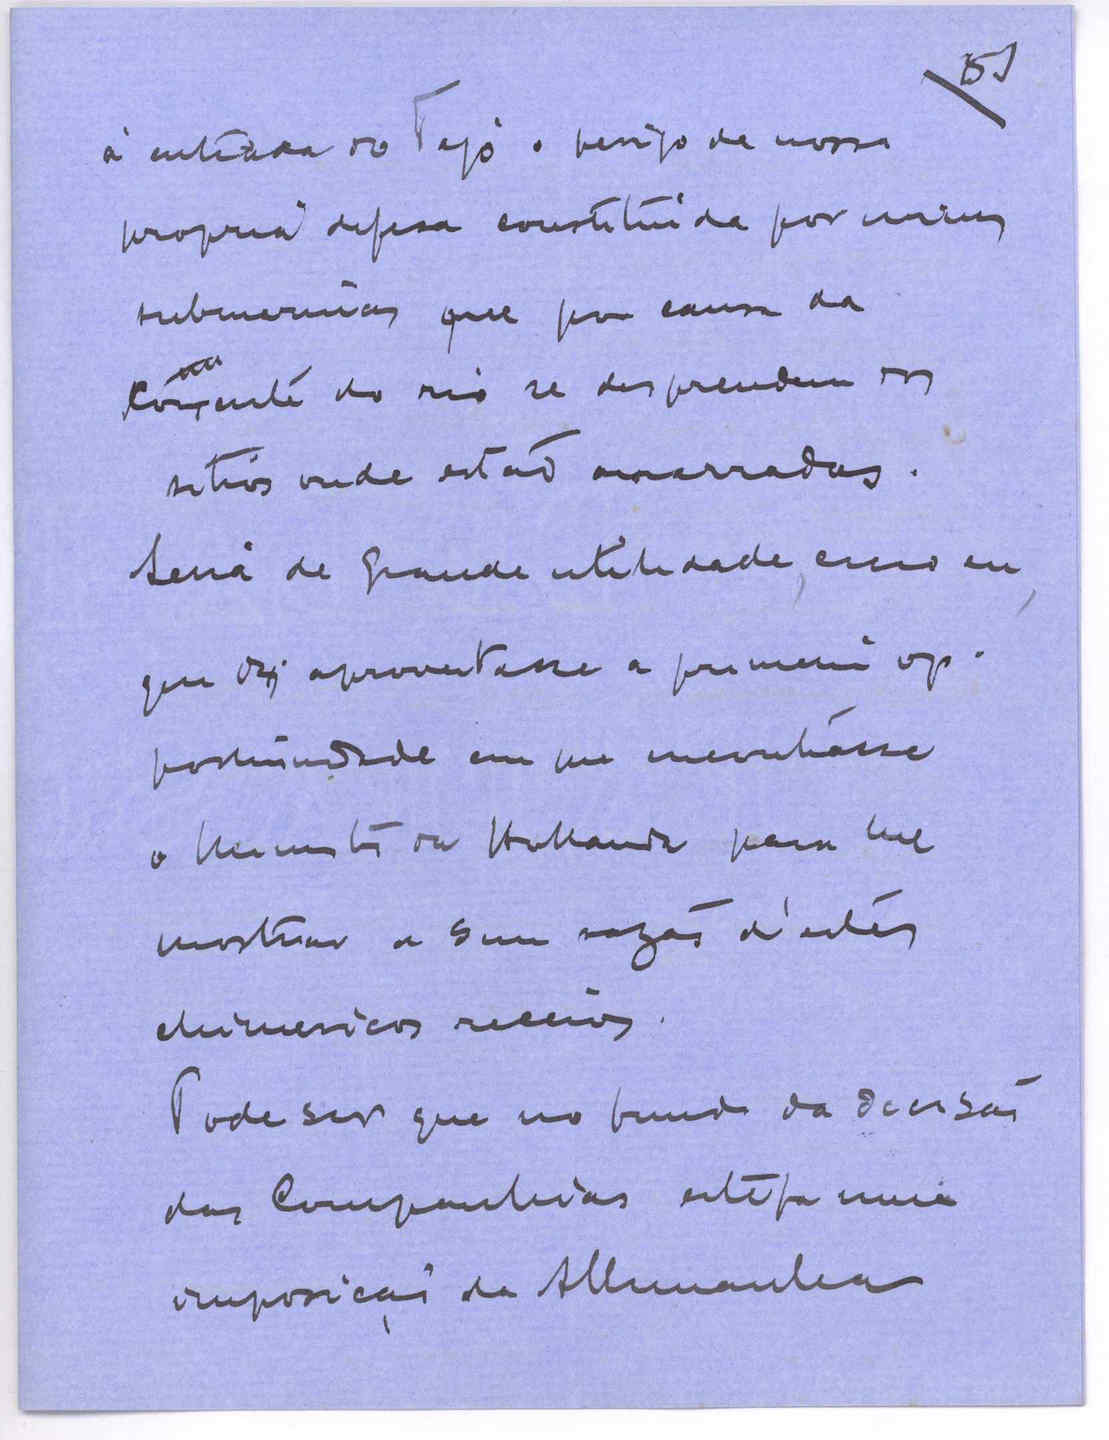 5)
à entrada do Tejo o perigo de nossa
propria defesa constituida por minas
submarinas que por causa da
corrente do rio se desprendem dos
sitios onde estaõ amarradas.
Seria de grande utilidade, creio eu,
que aproveitasse a primeira op-
portunidade em que encontrásse
o Ministro da Hollanda para lhe
mostrar a sem razaõ d'estes
chimericos receios.
Pode ser que no fundo da decisaõ
das Companhias esteja uma
imposiçaõ da Allemanha